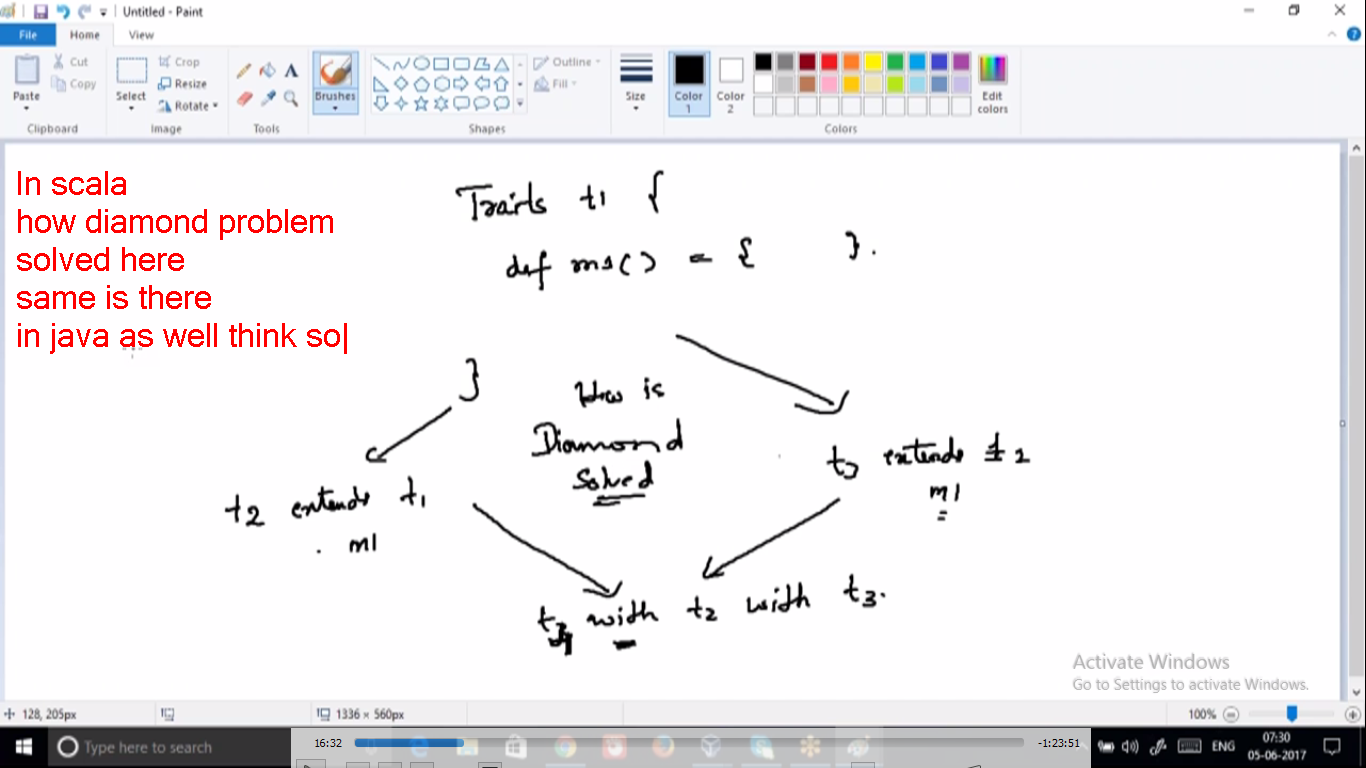 Untitled - Paint
File
Home
View
Paste
Cut
Copy
Clipboard
Select
Crop
Resize
Rotate
Image
A
Tools
Brushes
Outline
Fill
Shapes
Size
Color 1
Color 2
Edit colors
Colors
In scala
how diamond problem
solved here
same is there
in java as well think so
Traits t1 {
def m1() = { }.
}
How is
Diamond
Solved
t2 extends t1
m1
t3 extends t2
m1
with t2 with t3.
Activate Windows
Go to Settings to activate Windows.
128, 205px
1336 × 560px
100%
Type here to search
16:32
-1:23:51
ENG
07:30
05-06-2017